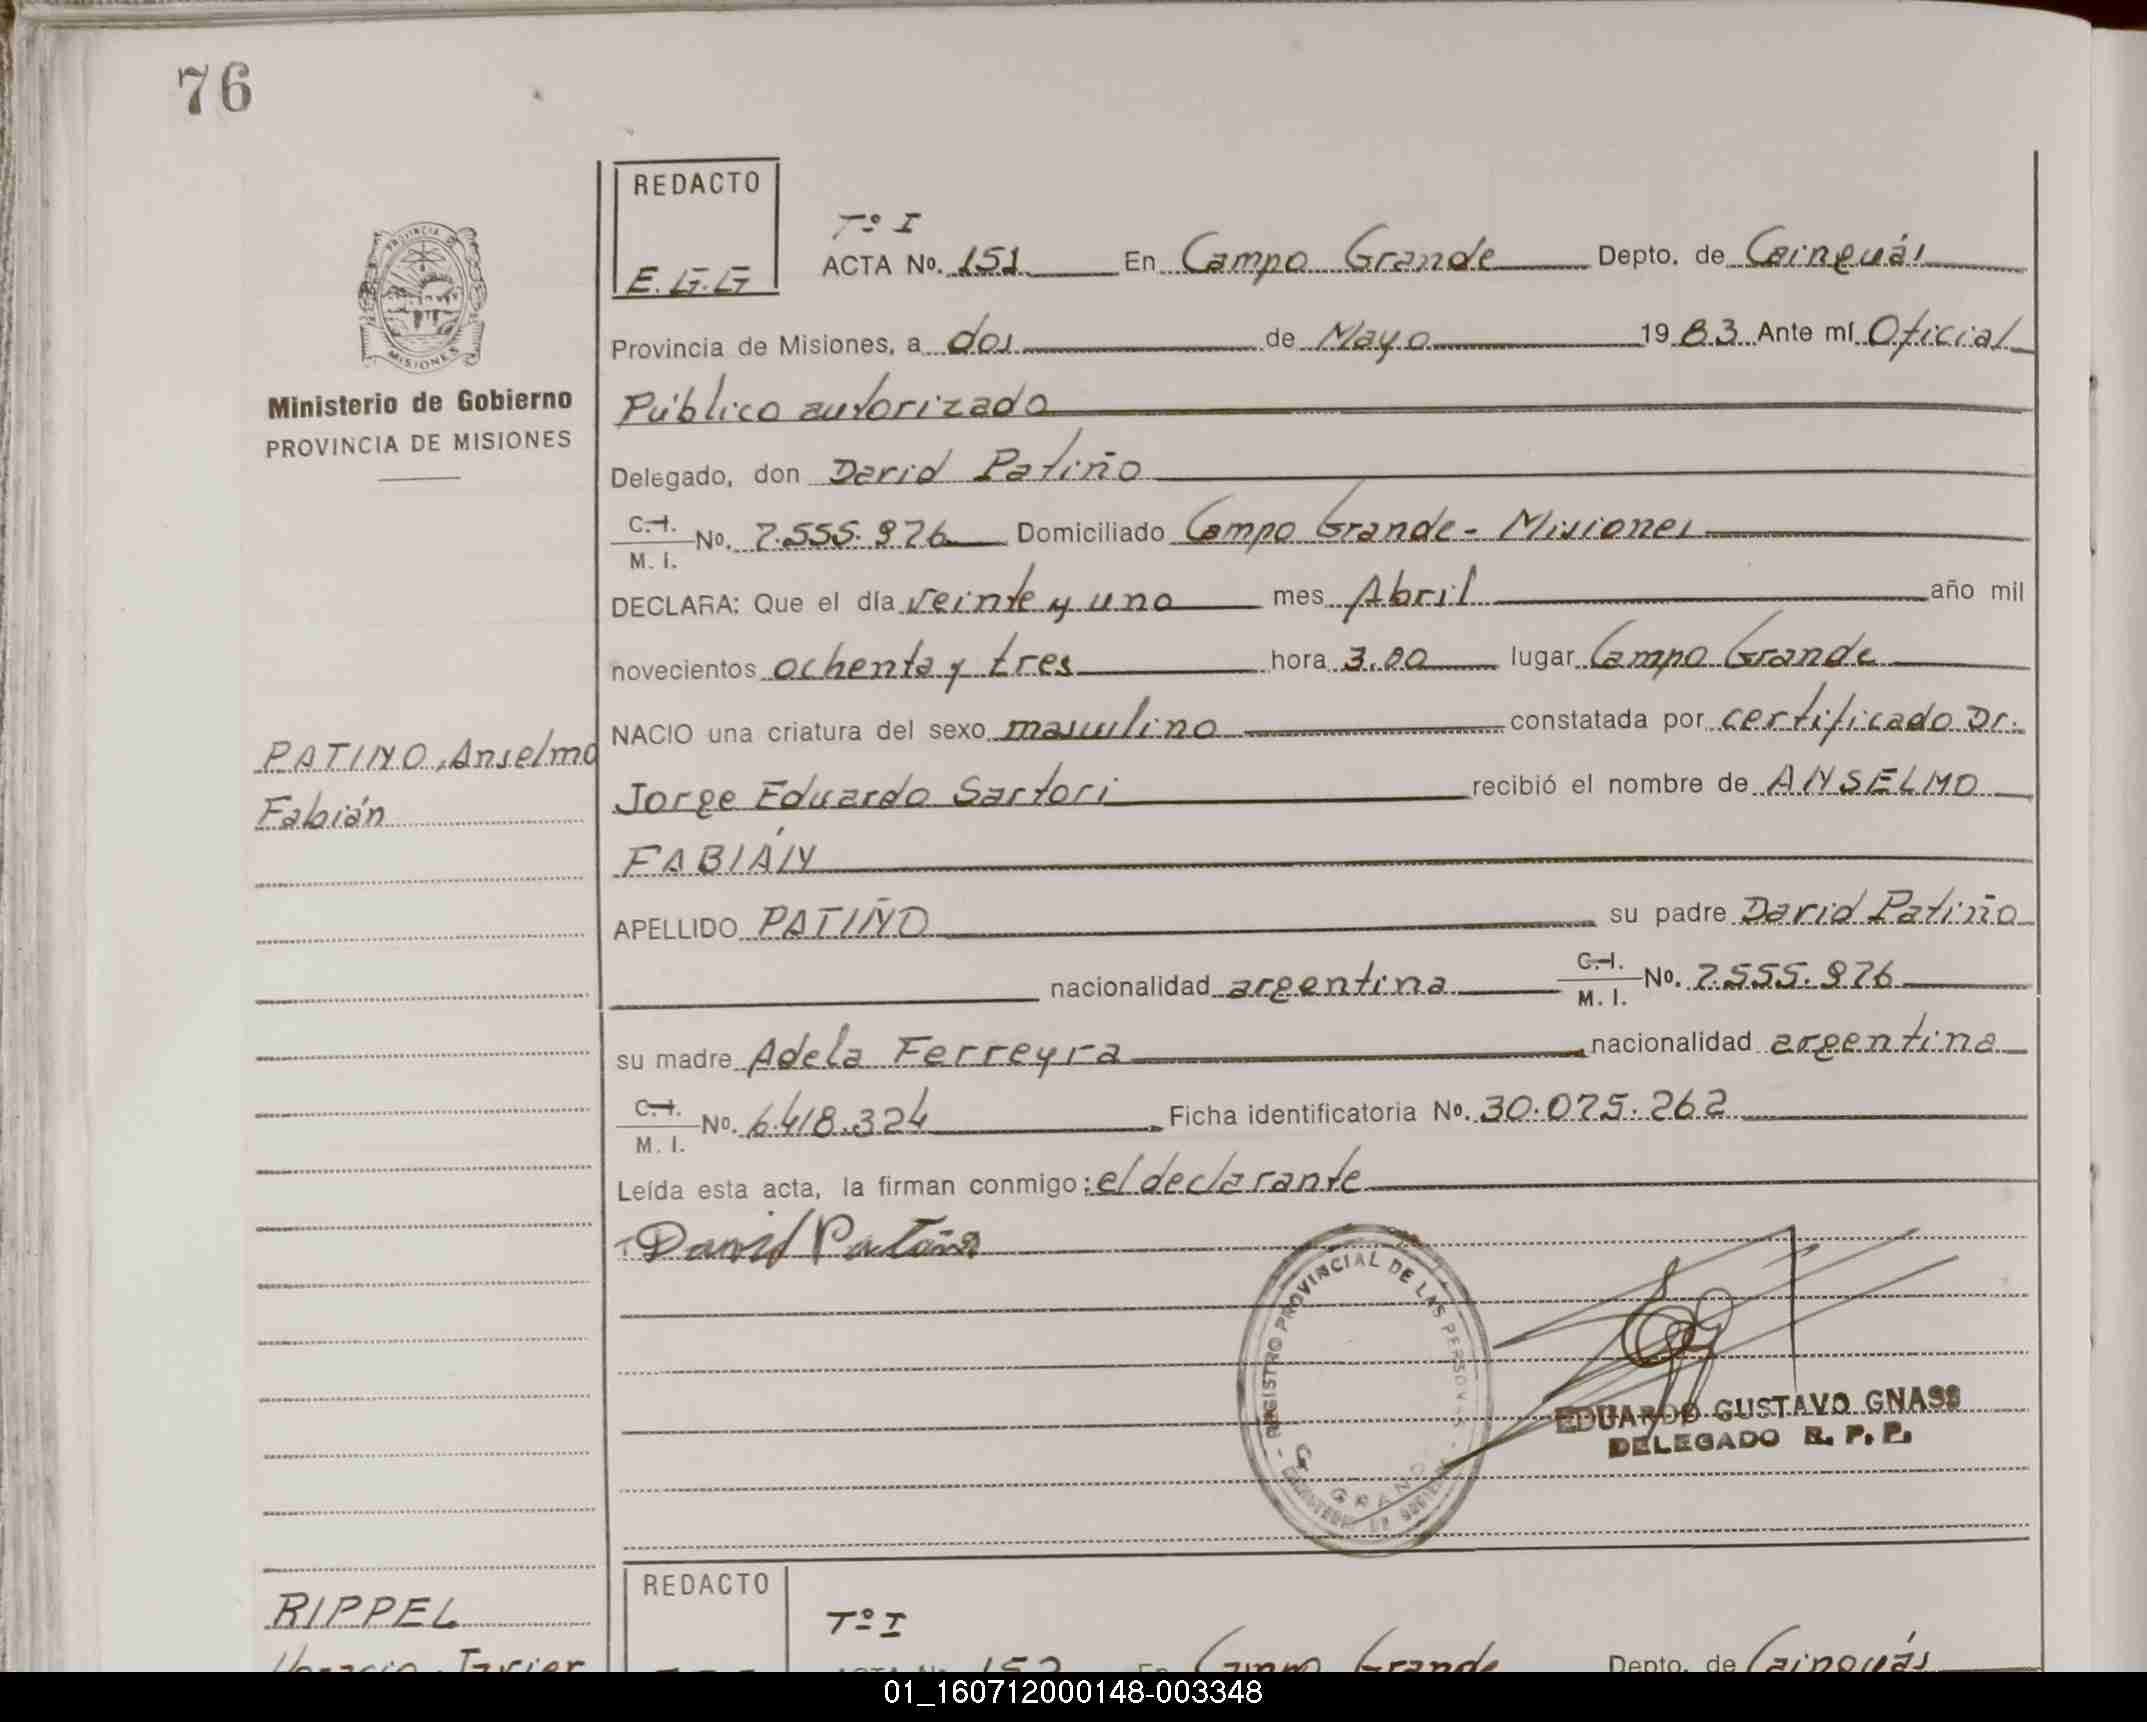 76
REDACTO
E.G.G
Tº I
ACTA Nº. 151 En Campo Grande Depto. de Cainguás
PROVINCIA DE
MISIONES
Provincia de Misiones, a dos de Mayo 1983 Ante mí Oficial
Ministerio de Gobierno
PROVINCIA DE MISIONES
Público autorizado
Delegado, don David Patiño
C.I.
M. I. Nº. 7.555.976 Domiciliado Campo Grande - Misiones
DECLARA: Que el día veinte y uno mes Abril año mil
novecientos ochenta y tres hora 3.00 lugar Campo Grande
PATIÑO, Anselmo
Fabián
NACIO una criatura del sexo masculino constatada por certificado Dr.
Jorge Eduardo Sartori recibió el nombre de ANSELMO
FABIÁN
APELLIDO PATIÑO su padre David Patiño
nacionalidad argentina C.I.
M. I. Nº. 7.555.976
su madre Adela Ferreyra nacionalidad argentina
C.I.
M. I. Nº. 6.418.324 Ficha identificatoria Nº. 30.075.262
Leída esta acta, la firman conmigo: el declarante
David Patiño
REGISTRO PROVINCIAL DE LAS PERSONAS
C. GRANDE
MINISTERIO DE GOBIERNO
EDUARDO GUSTAVO GNASS
DELEGADO R. P. P.
RIPPEL
Horacio Javier
REDACTO
Tº I
ACTA Nº. 152 En Campo Grande Depto. de Cainguás
01_160712000148-003348